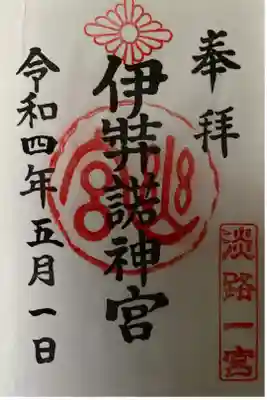 奉拝
伊弉諾神宮
淡路一宮
令和四年五月一日